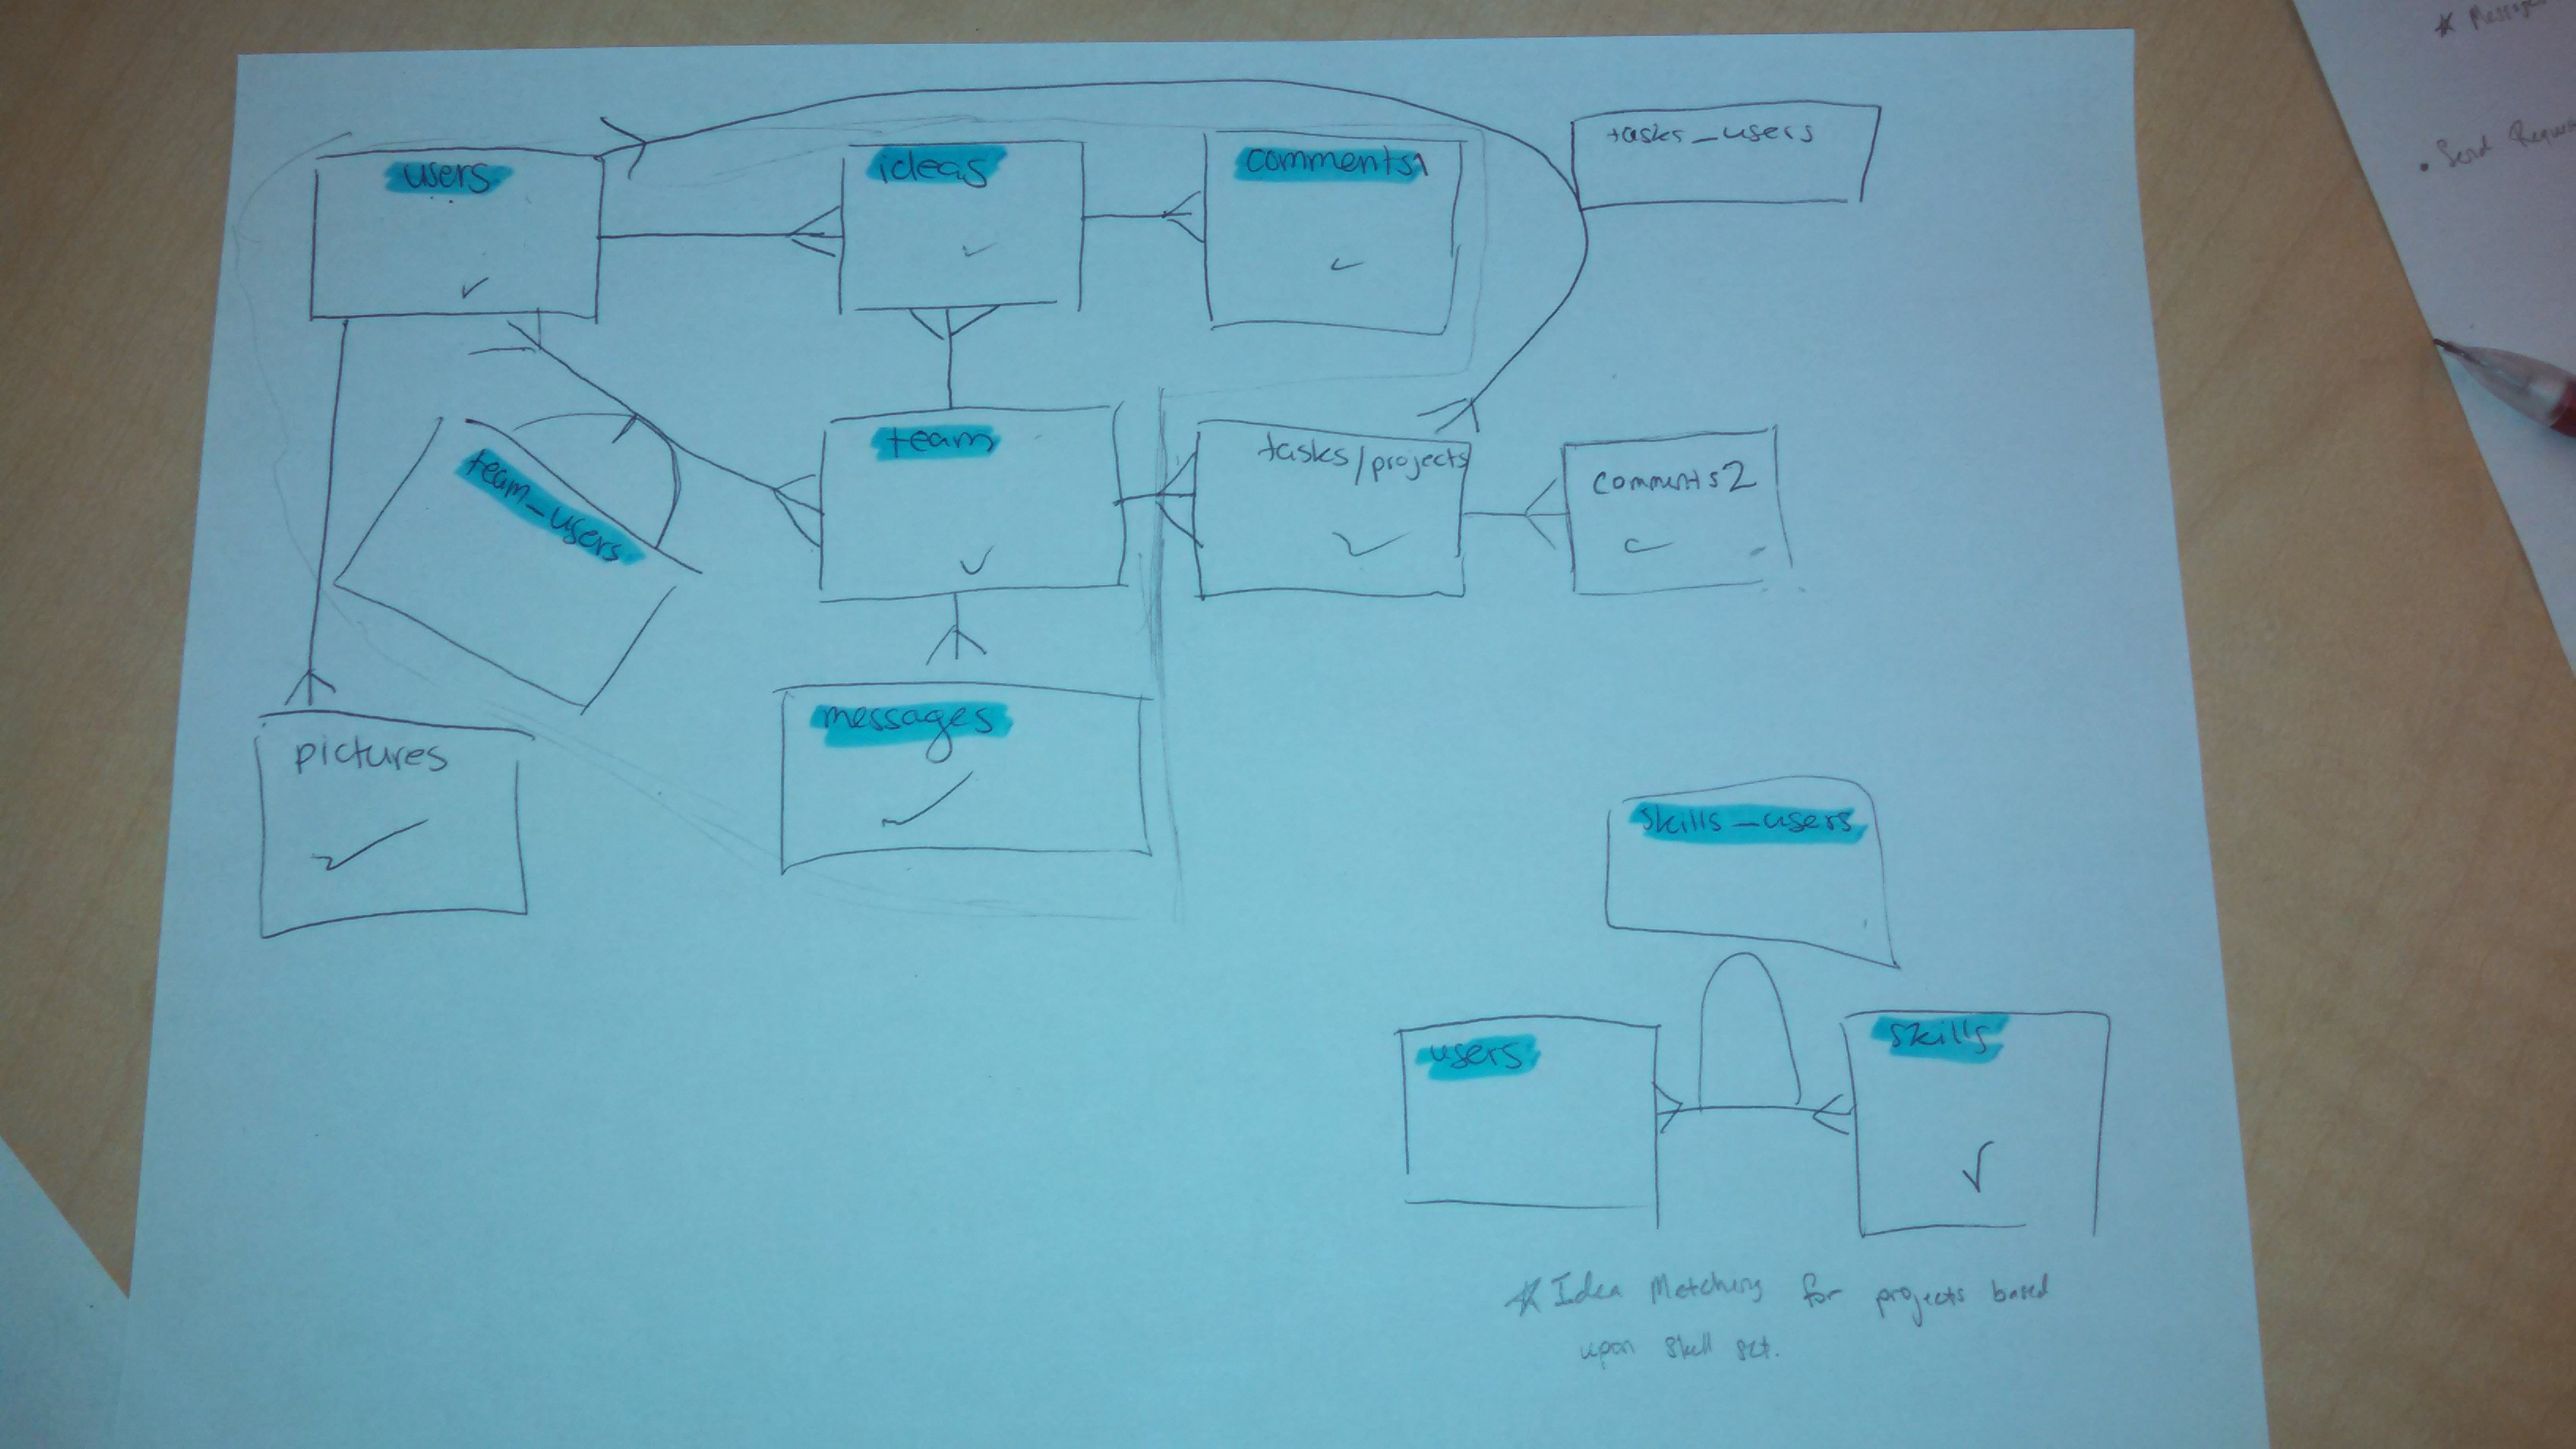 users
ideas
comments1
tasks_users
team
tasks/projects
comments2
team_users
messages
pictures
skills_users
users
skills
* Idea Matching for projects based
upon skill set.
* Messages
• Send Reques